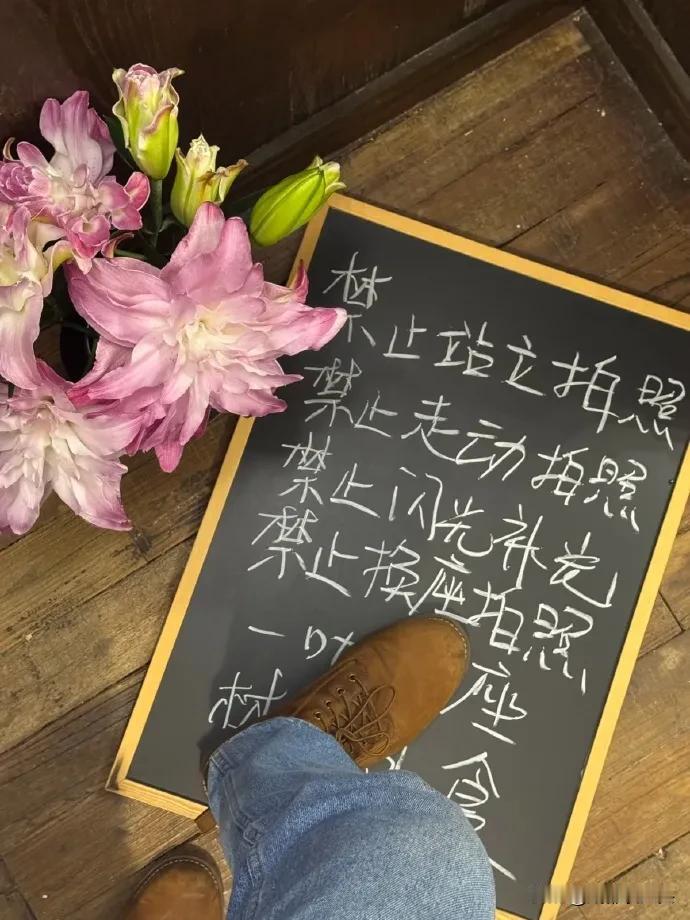 禁止站立拍照
禁止走动拍照
禁止闪光补光
禁止换座拍照
一 座
食